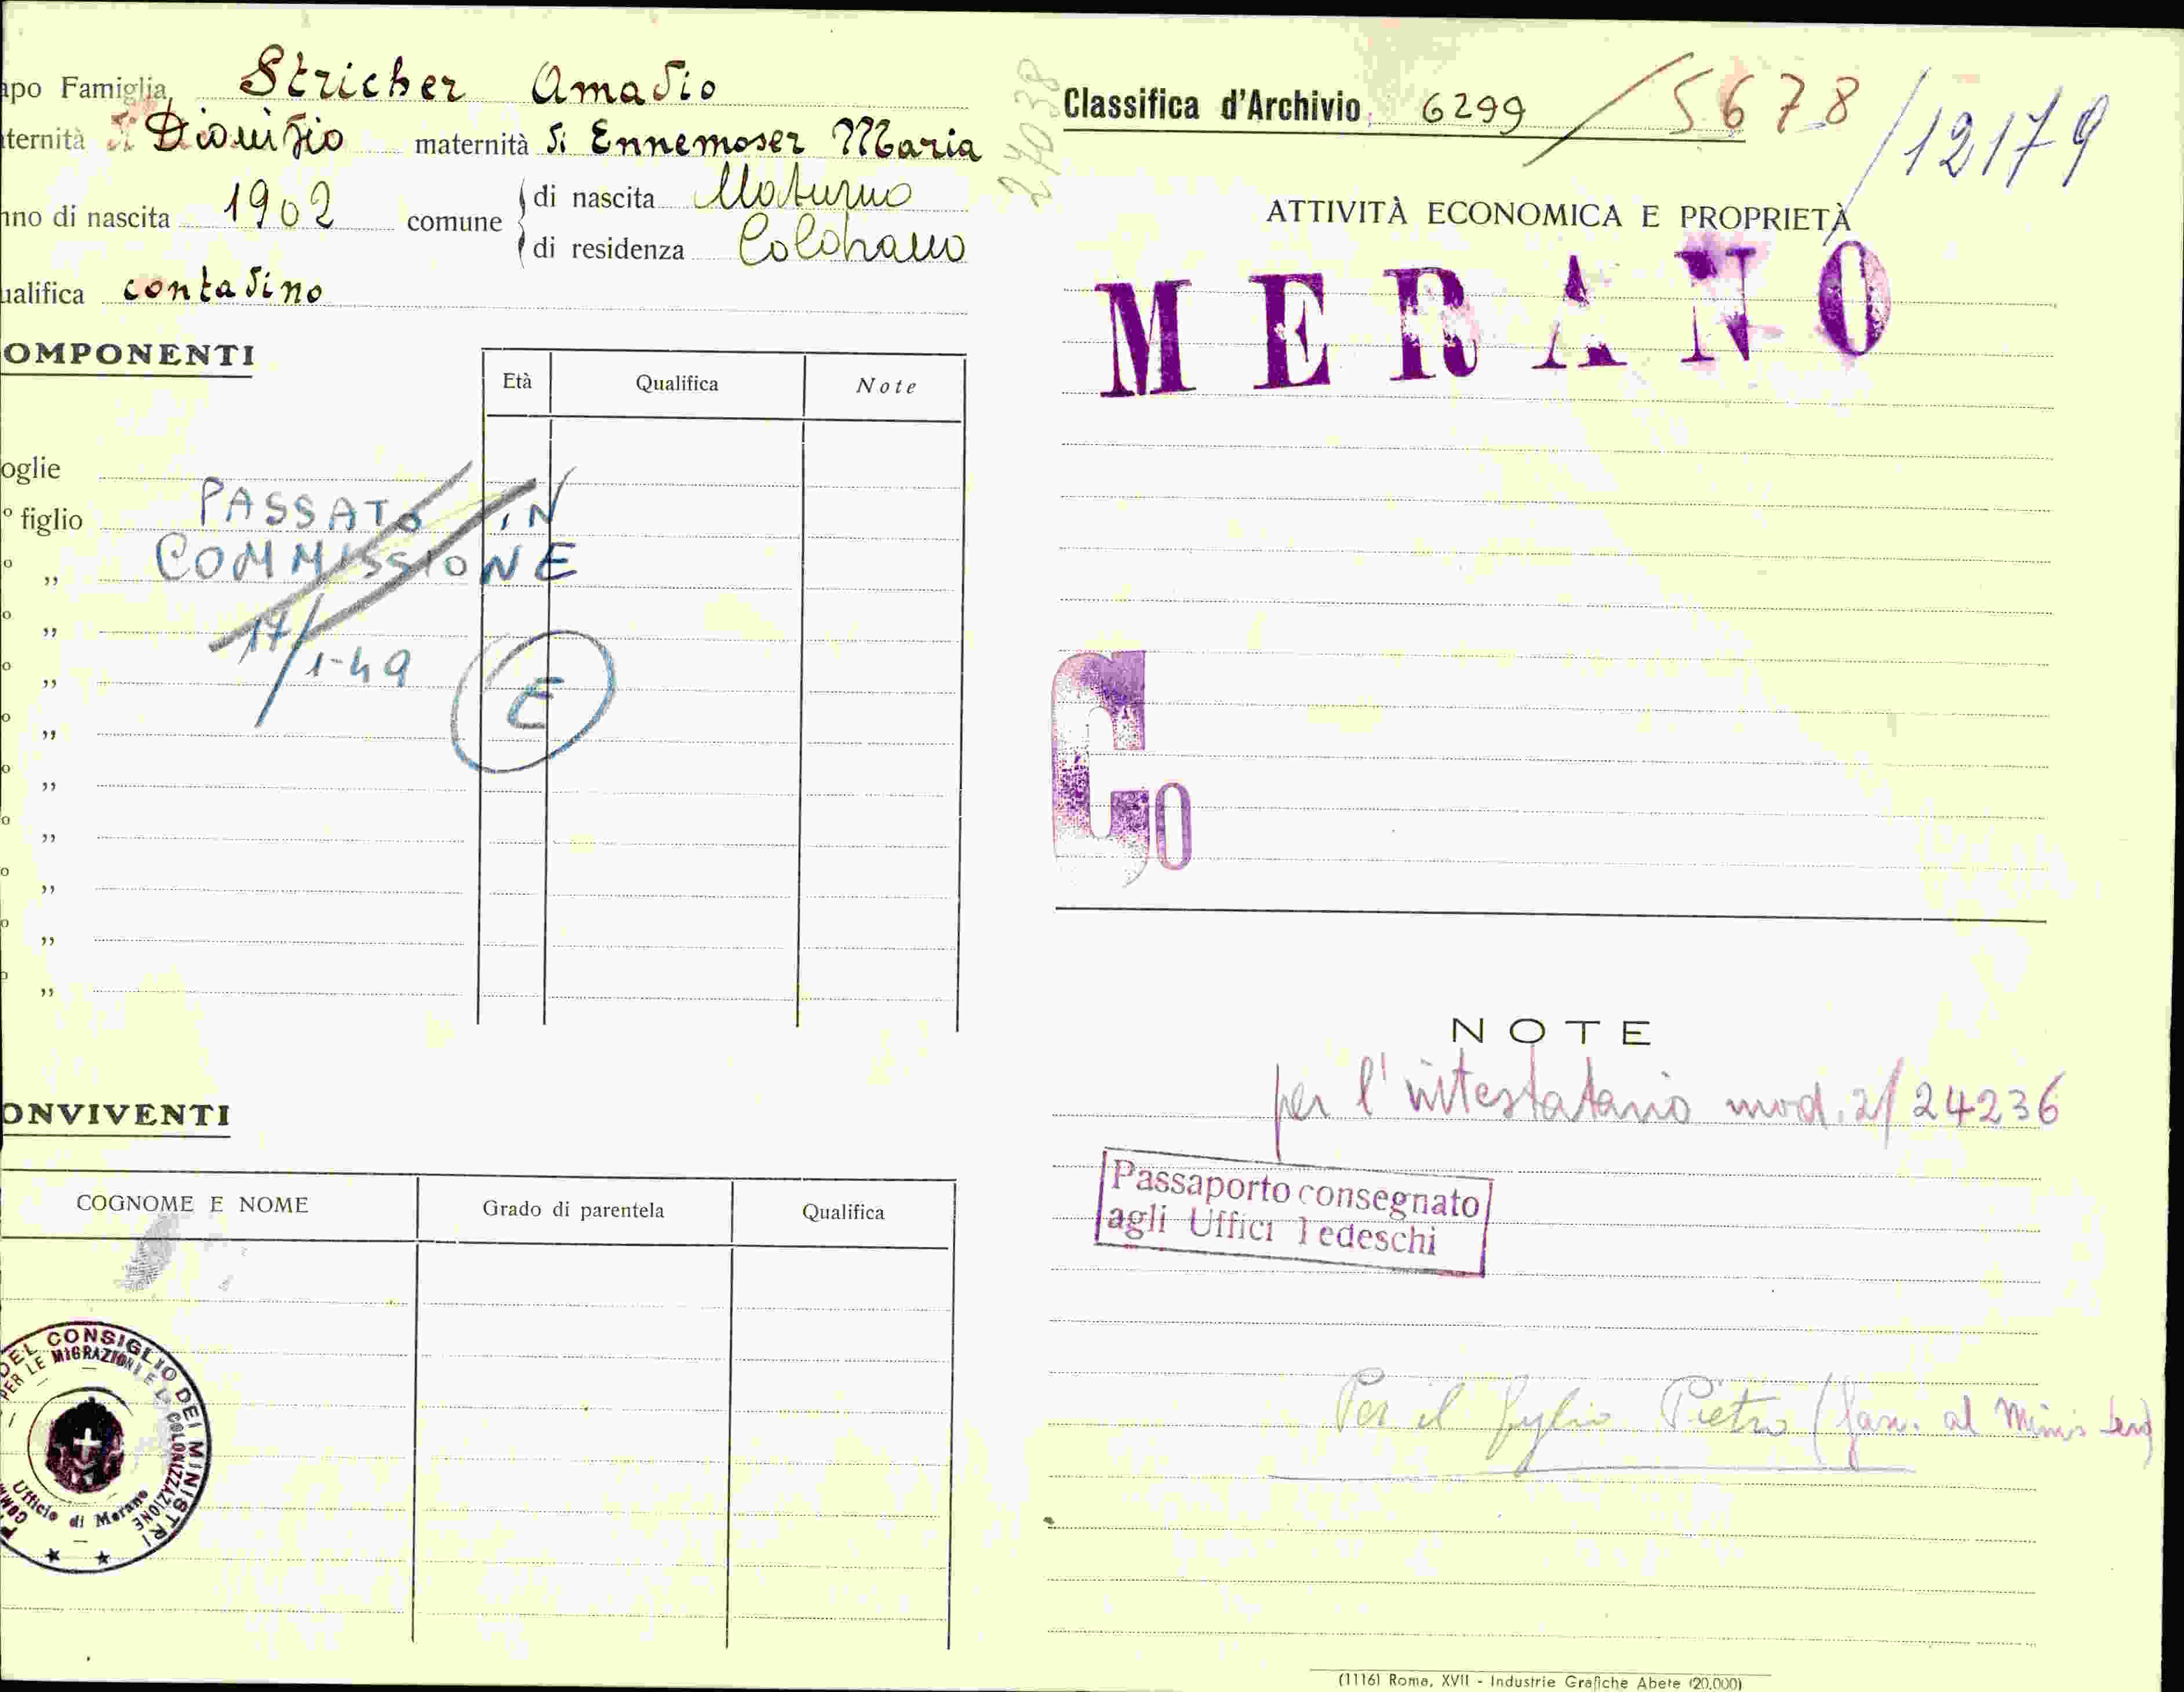 apo Famiglia Stricher Amadio
ternità di Dionisio maternità di Ennemoser Maria
nno di nascita 1902 comune di nascita Naturno
di residenza Coldrano
ualifica contadino
OMPONENTI
Età Qualifica Note
oglie
° figlio PASSATO IN
o „ COMMISSIONE
o „ 17/1-49
o „ E
o „
o „
o „
o „
o „
o „
ONVIVENTI
COGNOME E NOME Grado di parentela Qualifica
DEL CONSIGLIO DEI MINISTRI
PER LE MIGRAZIONI E LA COLONIZZAZIONE
Ufficio di Merano
27038
Classifica d'Archivio 6299 / 5678 / 12179
ATTIVITÀ ECONOMICA E PROPRIETÀ
MERANO
Co
NOTE
per l'intestatario mod. 2/24236
Passaporto consegnato
agli Uffici Tedeschi
Per il figlio Pietro (fasc. al Ministero)
(1116) Roma, XVII - Industrie Grafiche Abete (20.000)